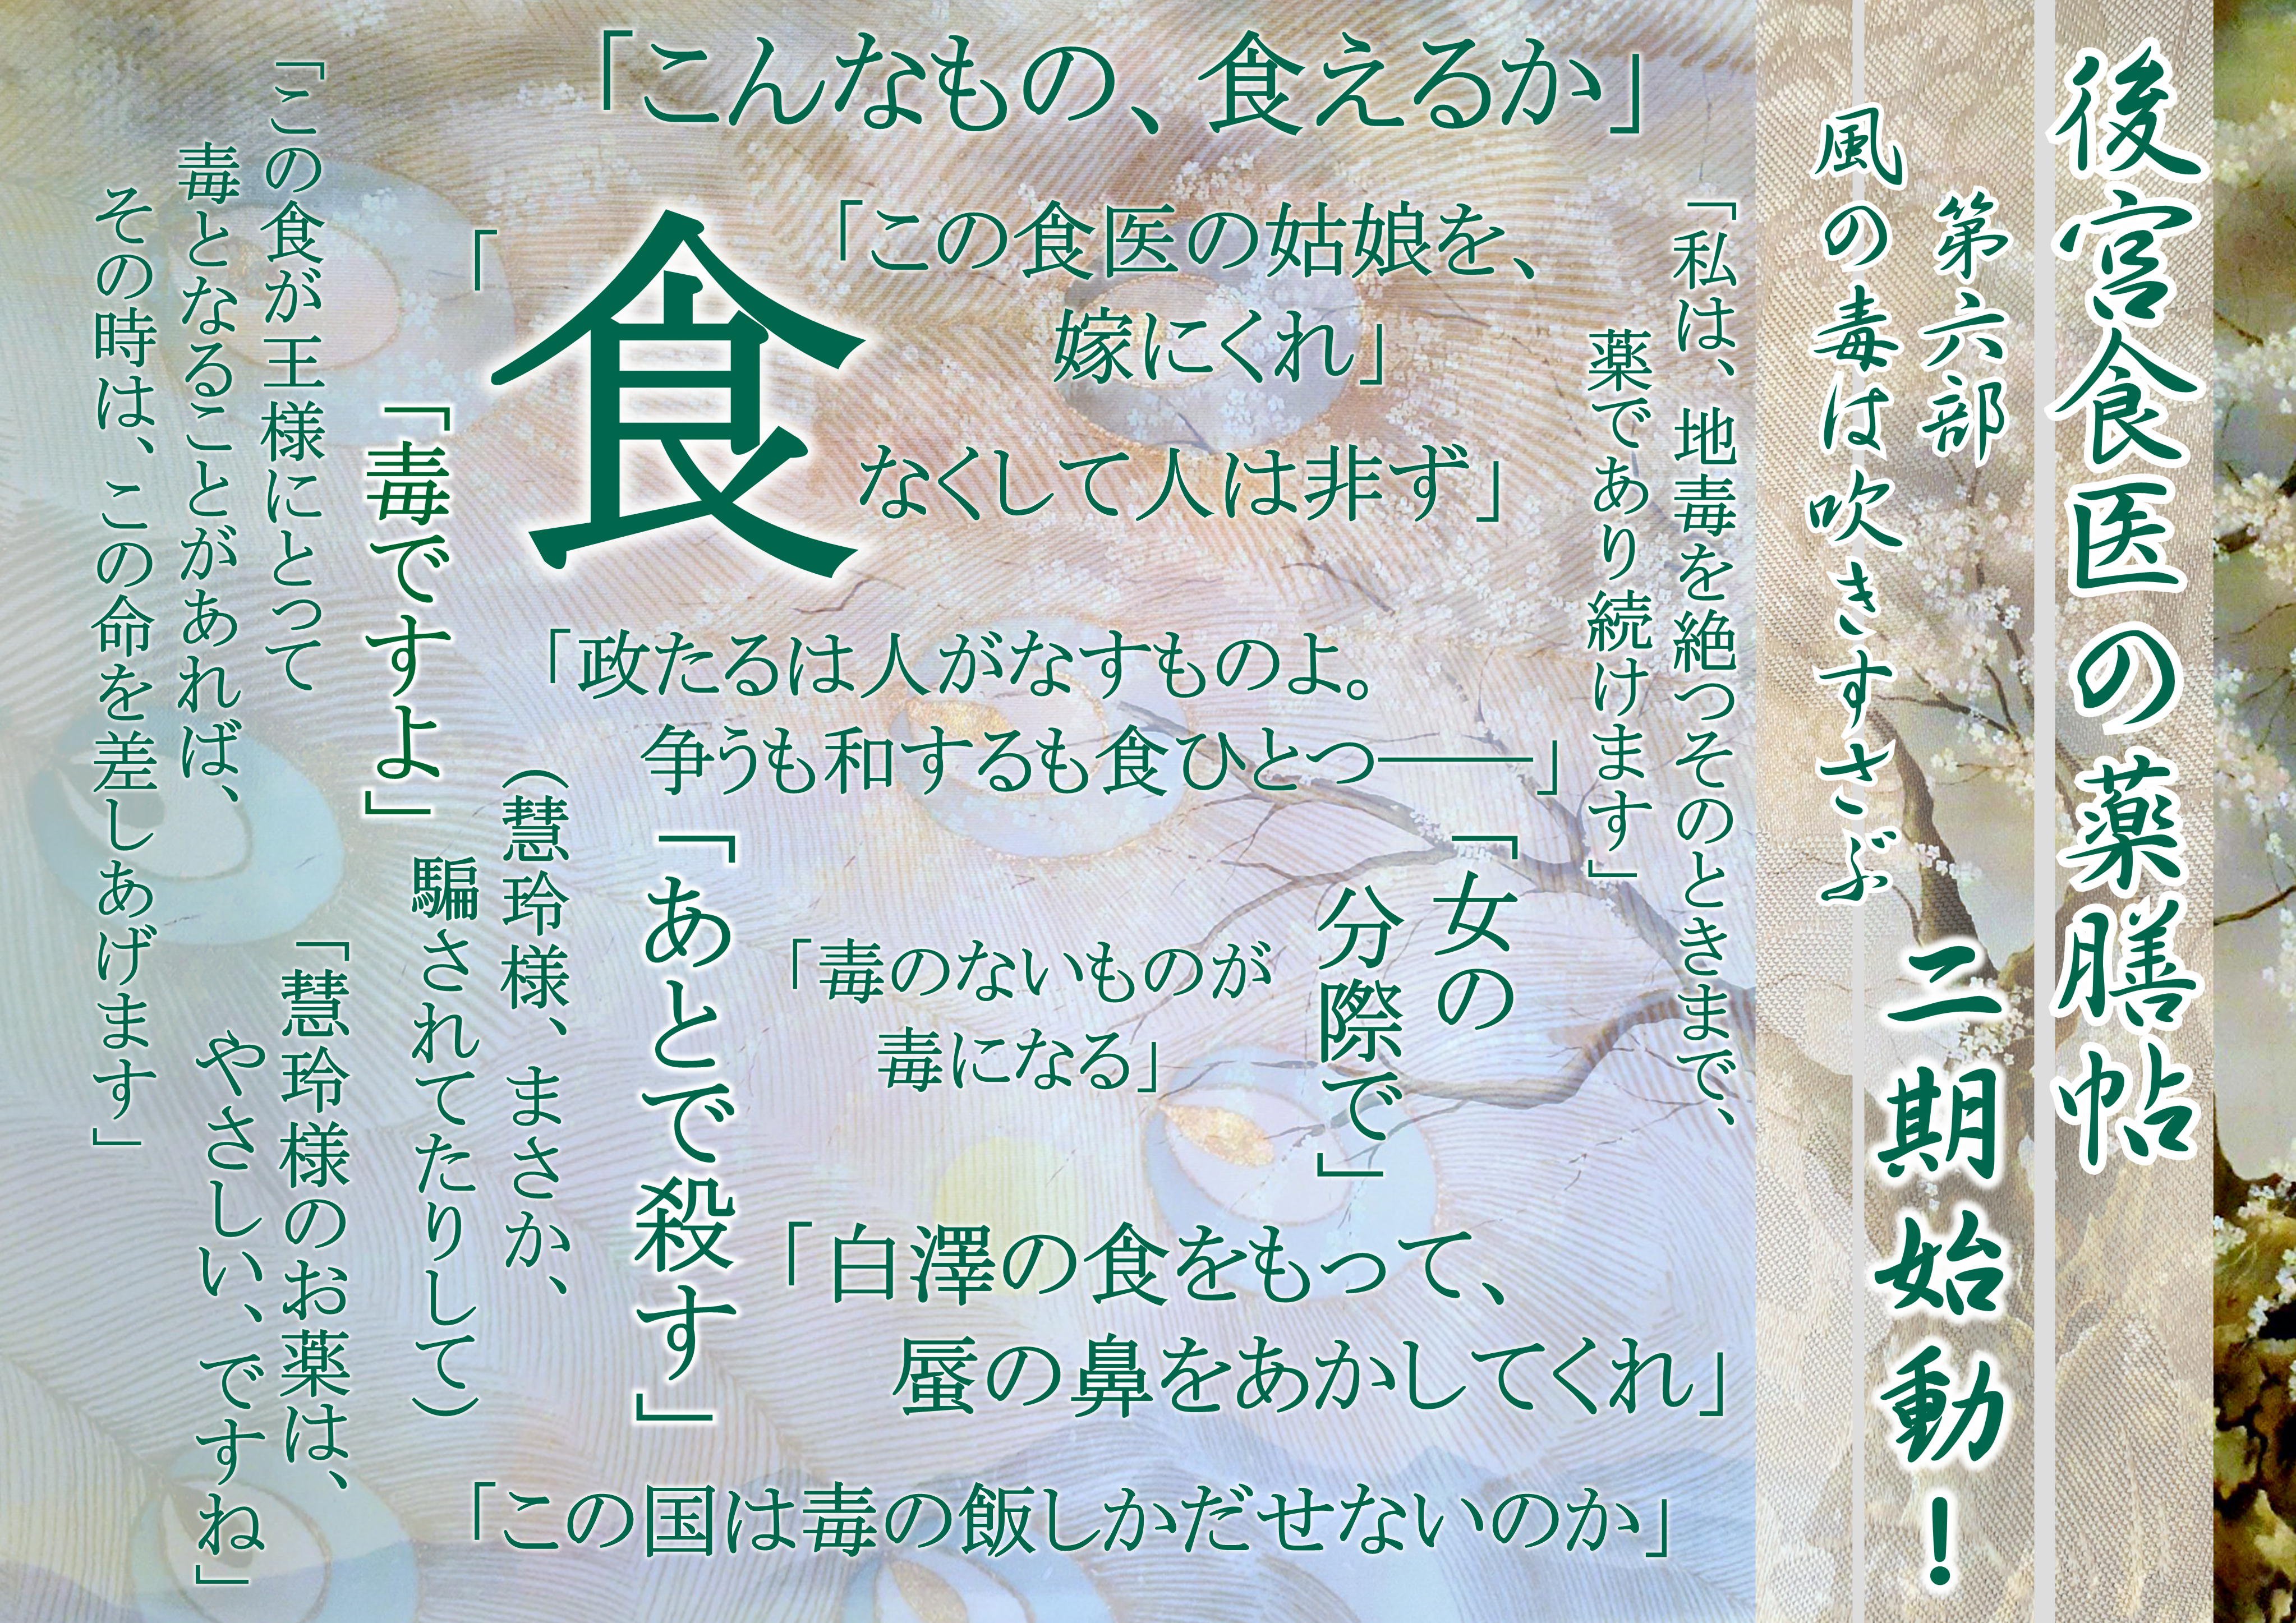 後宮食医の薬膳帖
第六部
風の毒は吹きすさぶ
二期始動！
「こんなもの、食えるか」
「私は、地毒を絶つそのときまで、
薬であり続けます」
「この食医の姑娘を、
嫁にくれ」
「食なくして人は非ず」
「政たるは人がなすものよ。
争うも和するも食ひとつ――」
「女の
分際で」
「毒のないものが
毒になる」
「白澤の食をもって、
蜃の鼻をあかしてくれ」
「あとで殺す」
（慧玲様、まさか、
騙されてたりして）
「毒ですよ」
「この食が王様にとって
毒となることがあれば、
その時は、この命を差しあげます」
「慧玲様のお薬は、
やさしい、ですね」
「この国は毒の飯しかだせないのか」